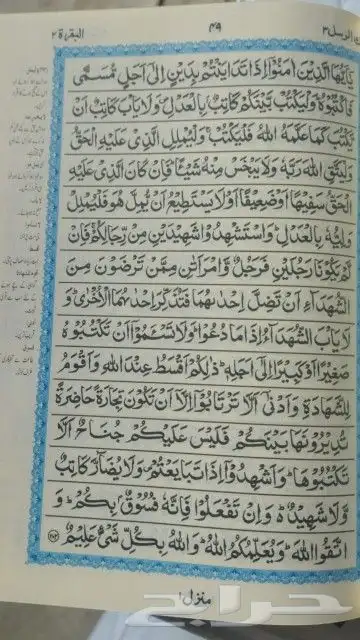 تلك الرسل ٣
٤٩
البقرة ٢
يٰۤاَيُّهَا الَّذِيْنَ اٰمَنُوْۤا اِذَا تَدَايَنْتُمْ بِدَيْنٍ اِلٰۤى اَجَلٍ مُّسَمًّى
فَاكْتُبُوْهُ ؕ وَلْيَكْتُبْ بَّيْنَكُمْ كَاتِبٌۢ بِالْعَدْلِ ۪ وَلَا يَاْبَ كَاتِبٌ اَنْ
يَّكْتُبَ كَمَا عَلَّمَهُ اللّٰهُ فَلْيَكْتُبْ ۚ وَلْيُمْلِلِ الَّذِيْ عَلَيْهِ الْحَقُّ
وَلْيَتَّقِ اللّٰهَ رَبَّهٗ وَلَا يَبْخَسْ مِنْهُ شَيْـًٔا ؕ فَاِنْ كَانَ الَّذِيْ عَلَيْهِ
الْحَقُّ سَفِيْهًا اَوْ ضَعِيْفًا اَوْ لَا يَسْتَطِيْعُ اَنْ يُّمِلَّ هُوَ فَلْيُمْلِلْ
وَلِيُّهٗ بِالْعَدْلِ ؕ وَاسْتَشْهِدُوْا شَهِيْدَيْنِ مِنْ رِّجَالِكُمْ ۚ فَاِنْ
لَّمْ يَكُوْنَا رَجُلَيْنِ فَرَجُلٌ وَّامْرَاَتٰنِ مِمَّنْ تَرْضَوْنَ مِنَ
الشُّهَدَآءِ اَنْ تَضِلَّ اِحْدٰىهُمَا فَتُذَكِّرَ اِحْدٰىهُمَا الْاُخْرٰى ؕ وَ
لَا يَاْبَ الشُّهَدَآءُ اِذَا مَا دُعُوْا ؕ وَلَا تَسْـَٔمُوْۤا اَنْ تَكْتُبُوْهُ
صَغِيْرًا اَوْ كَبِيْرًا اِلٰۤى اَجَلِهٖ ؕ ذٰلِكُمْ اَقْسَطُ عِنْدَ اللّٰهِ وَاَقْوَمُ
لِلشَّهَادَةِ وَاَدْنٰۤى اَلَّا تَرْتَابُوْۤا اِلَّاۤ اَنْ تَكُوْنَ تِجَارَةً حَاضِرَةً
تُدِيْرُوْنَهَا بَيْنَكُمْ فَلَيْسَ عَلَيْكُمْ جُنَاحٌ اَلَّا
تَكْتُبُوْهَا ؕ وَاَشْهِدُوْۤا اِذَا تَبَايَعْتُمْ ۪ وَلَا يُضَآرَّ كَاتِبٌ
وَّلَا شَهِيْدٌ ؕ۬ وَاِنْ تَفْعَلُوْا فَاِنَّهٗ فُسُوْقٌۢ بِكُمْ ؕ وَ
اتَّقُوا اللّٰهَ ؕ وَيُعَلِّمُكُمُ اللّٰهُ ؕ وَاللّٰهُ بِكُلِّ شَيْءٍ عَلِيْمٌ ۝
منزل ١
حراج